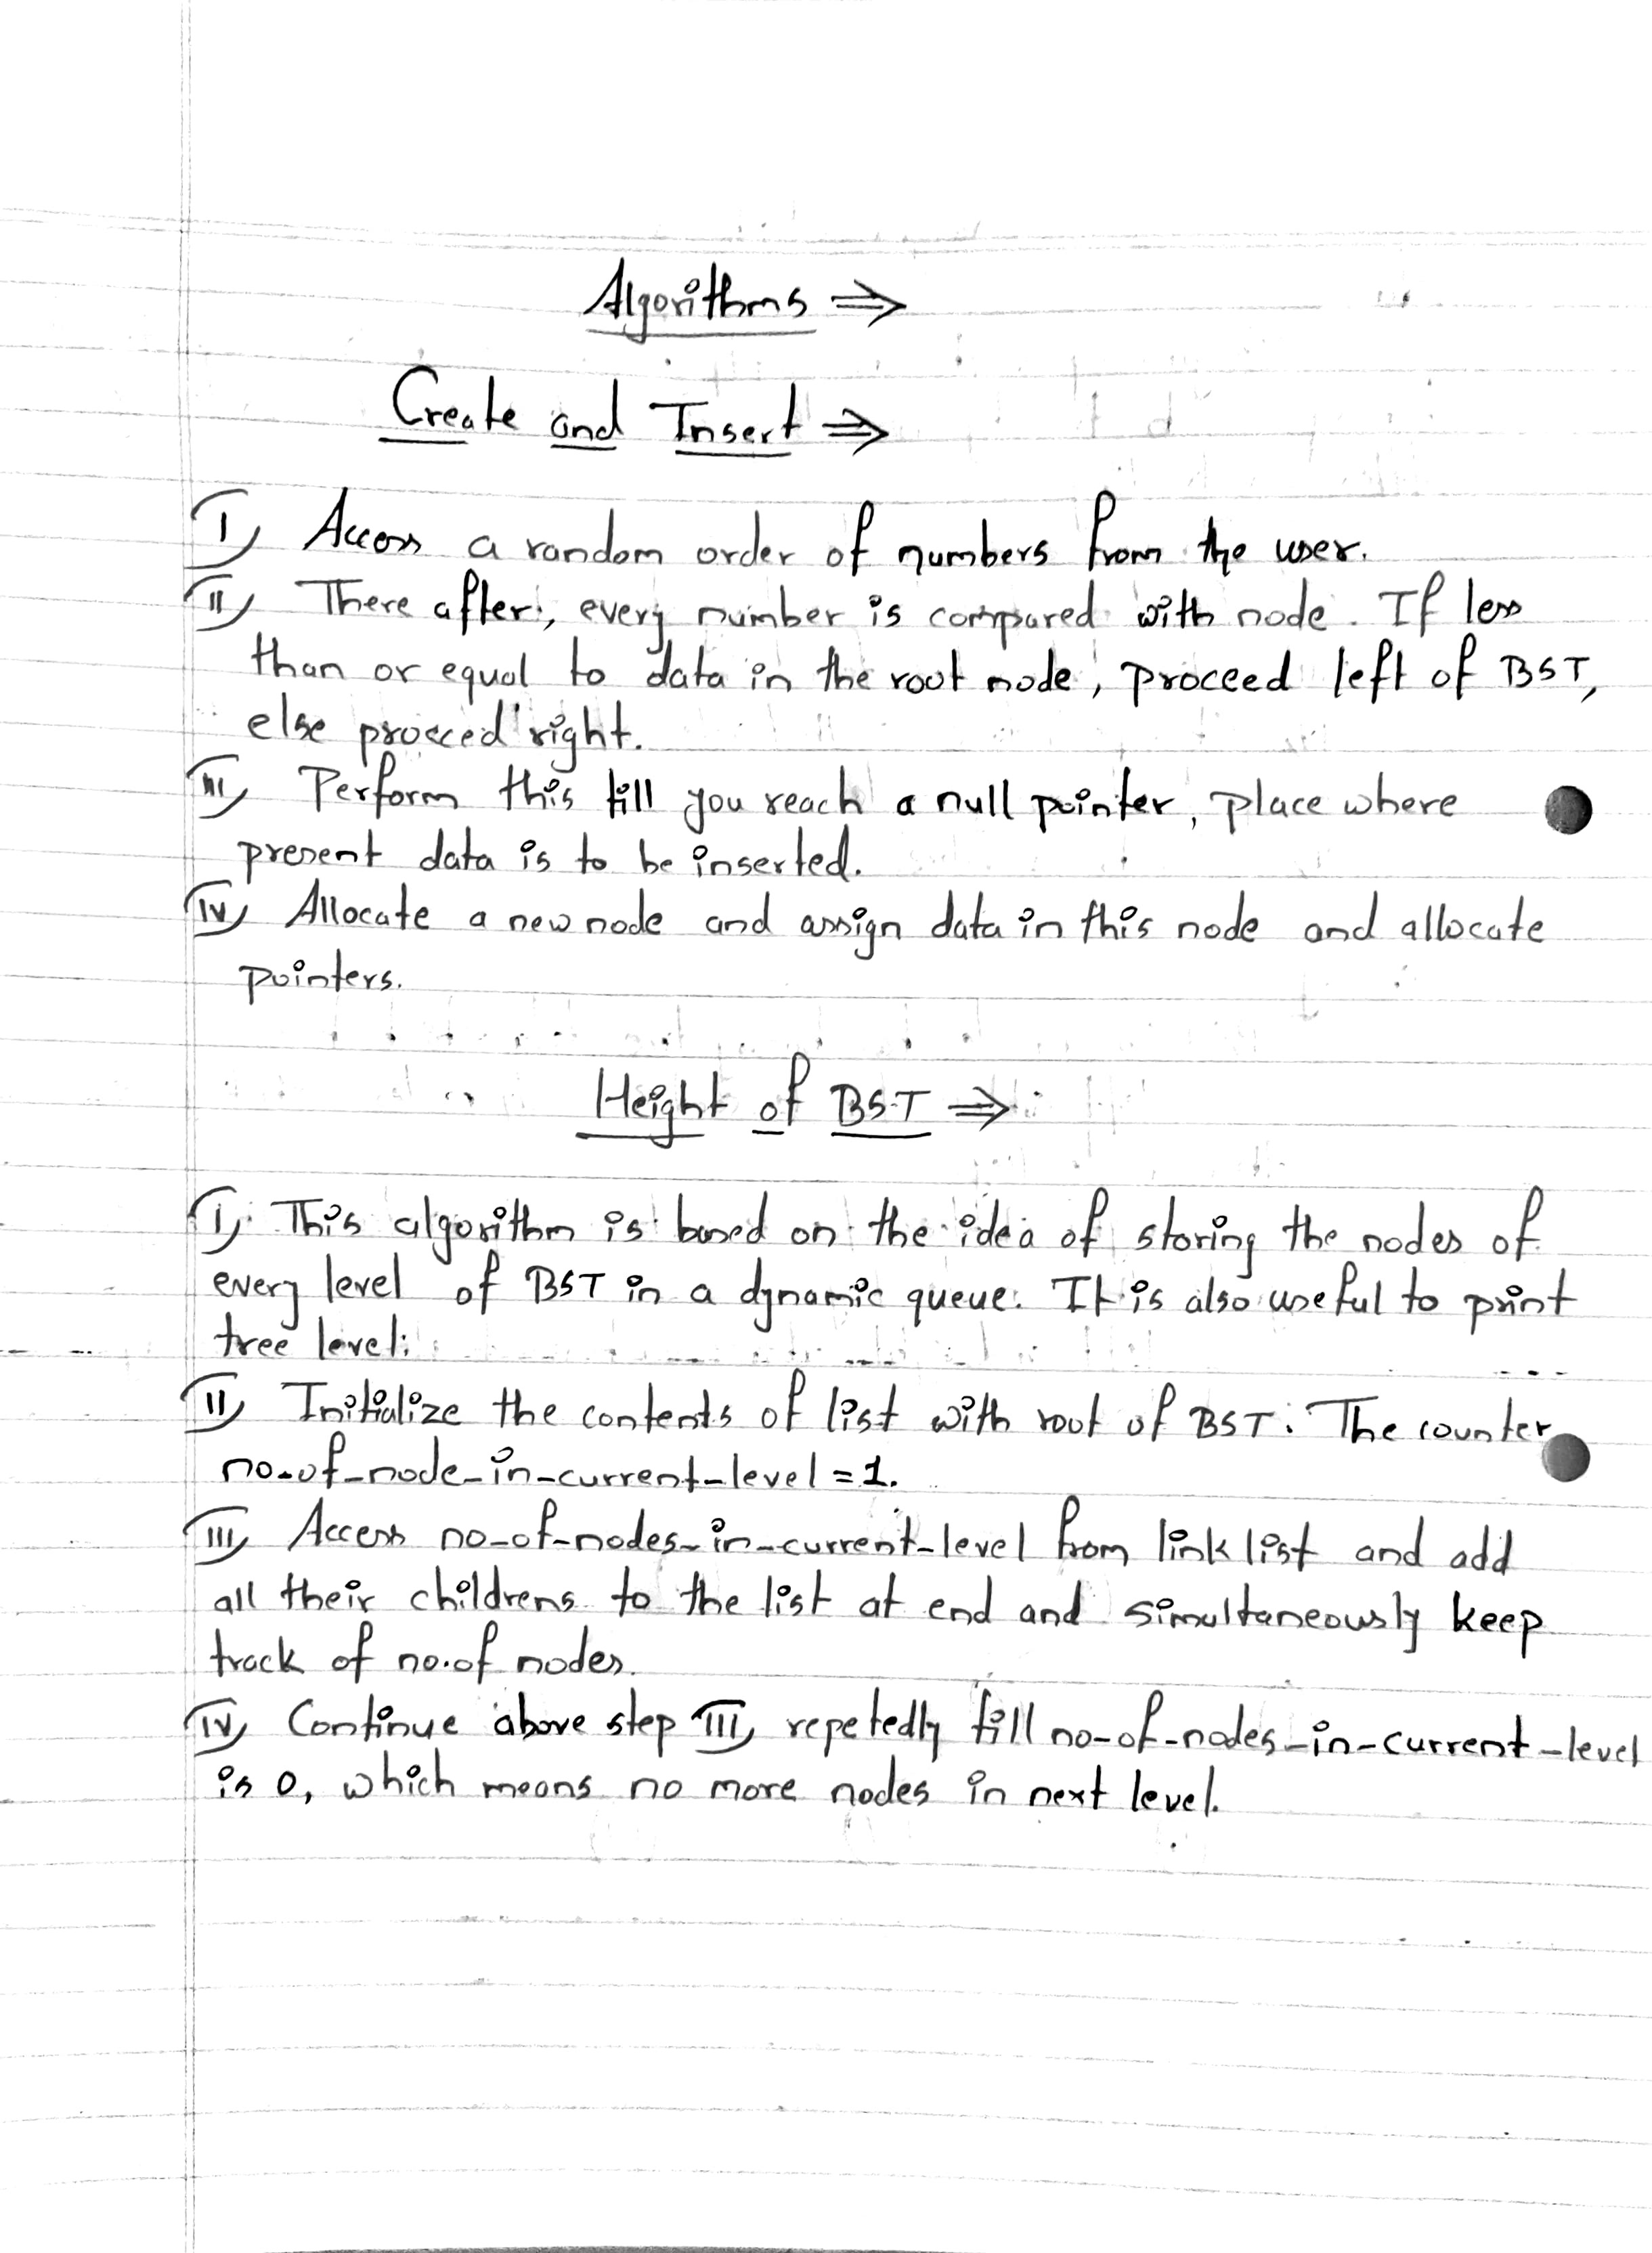 Algorithms ⇒
Create and Insert ⇒
I) Access a random order of numbers from the user.
II) There after, every number is compared with node. If less
than or equal to data in the root node, proceed left of BST,
else proceed right.
III) Perform this till you reach a null pointer, place where
present data is to be inserted.
IV) Allocate a new node and assign data in this node and allocate
pointers.
Height of BST ⇒
I) This algorithm is based on the idea of storing the nodes of
every level of BST in a dynamic queue. It is also useful to print
tree level.
II) Initialize the contents of list with root of BST. The counter
no-of-node-in-current-level = 1.
III) Access no-of-nodes-in-current-level from link list and add
all their childrens to the list at end and simultaneously keep
track of no.of nodes.
IV) Continue above step III) repetedly till no-of-nodes-in-current-level
is 0, which means no more nodes in next level.